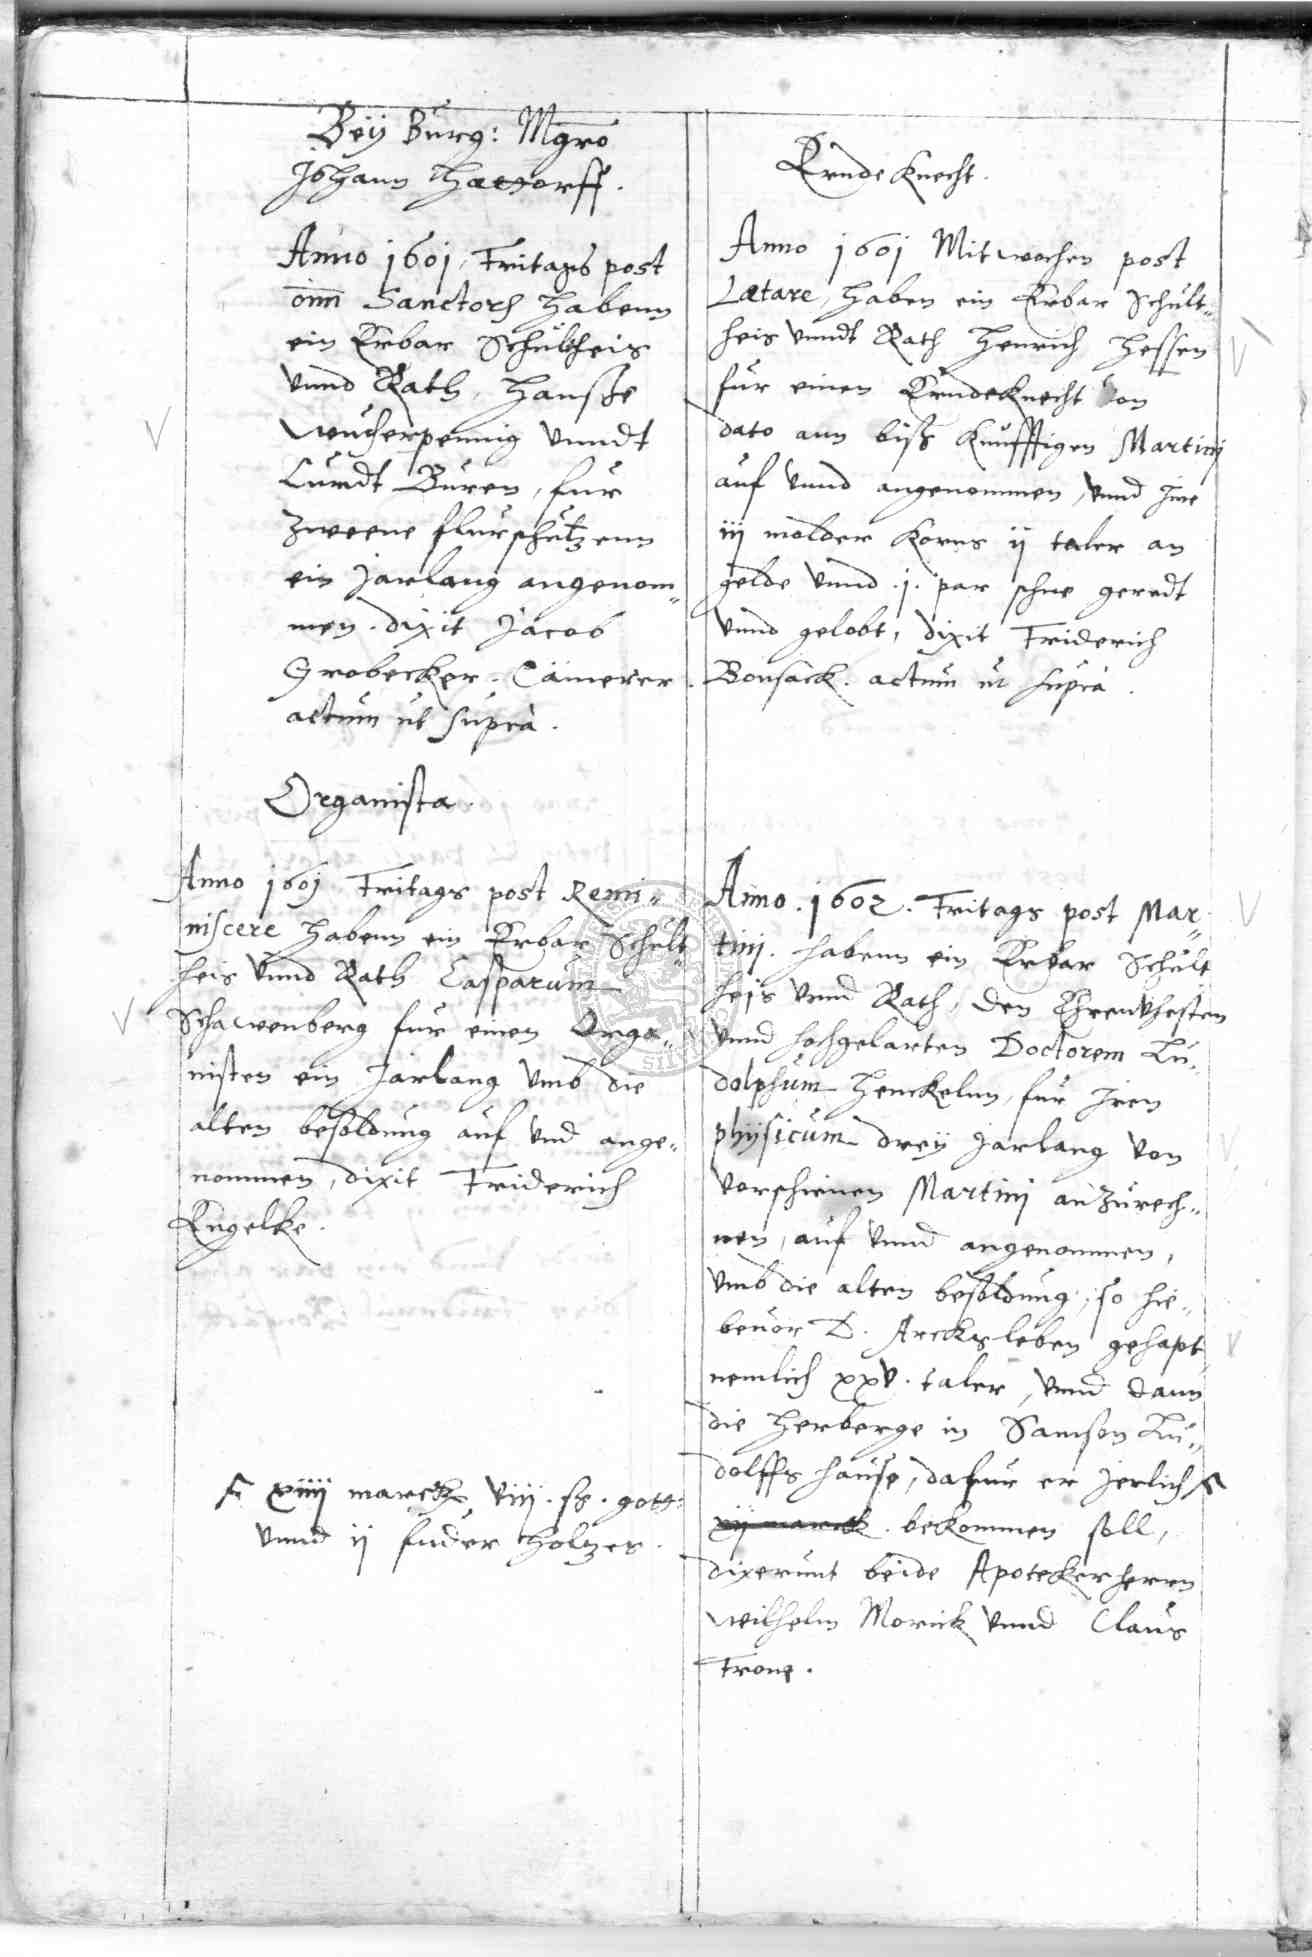 Beÿ Burg: Mgro
Johann Hattorff.
Anno 1601, Fritags post
oīm Sanctorȝ habenn
ein Erbar Schultheis
vnnd Rath, Hanße
Wucherpennig vnndt
Curdt Buren, fur
zweene flurschutzenn
ein Jarlang angenom„
men. dixit Jacob
Grobecker. Cämerer.
actum ut supra.
Organista.
Anno 1601 Fritags post Remi„
niscere habenn ein Erbar Schult„
heis vnnd Rath Casparum
Schawenberg fur einen Orga„
nisten ein Jarlang vmb die
alten besoldung auf vnd ange„
nommen, dixit Friderich
Engelke.
xiiij marck viij. ß. gott:
vnnd ij fuder holtzes.
Ernde Knecht.
Anno 1601 Mitwochen post
Lætare, haben ein Erbar Schult„
heis vnndt Rath Henrich Hessen
fur einen Erndeknecht von
dato ann biß Kunfftigen Martini
auf vnnd angenommen, vnnd Ime
iij molder Korns ij taler an
gelde vnnd .j. par schue geredt
vnnd gelobt, dixit Friderich
Bonsack. actum ut supra.
Anno. 1602. Fritags post Mar„
tinj. habenn ein Erbar Schult
heis vnnd Rath, den Ehrenvhesten
vnnd hochgelarten Doctorem Lu„
dolphum Henckelnn, fur Iren
phÿsicum dreÿ Jarlang von
vorschienen Martini anzurech„
nen, auf vnnd angenommen,
vmb die alten besoldung, so hie„
beuor D. Arcksleben gehapt
nemlich xxv. taler, vnnd dann
die Herberge in Samson Lu„
dolffs hause, dafuur er Jerlich
xij marck. bekommen soll,
dixerunt beide Apotekerherrn
Wilhelm Morick vnnd Claus
Trone.